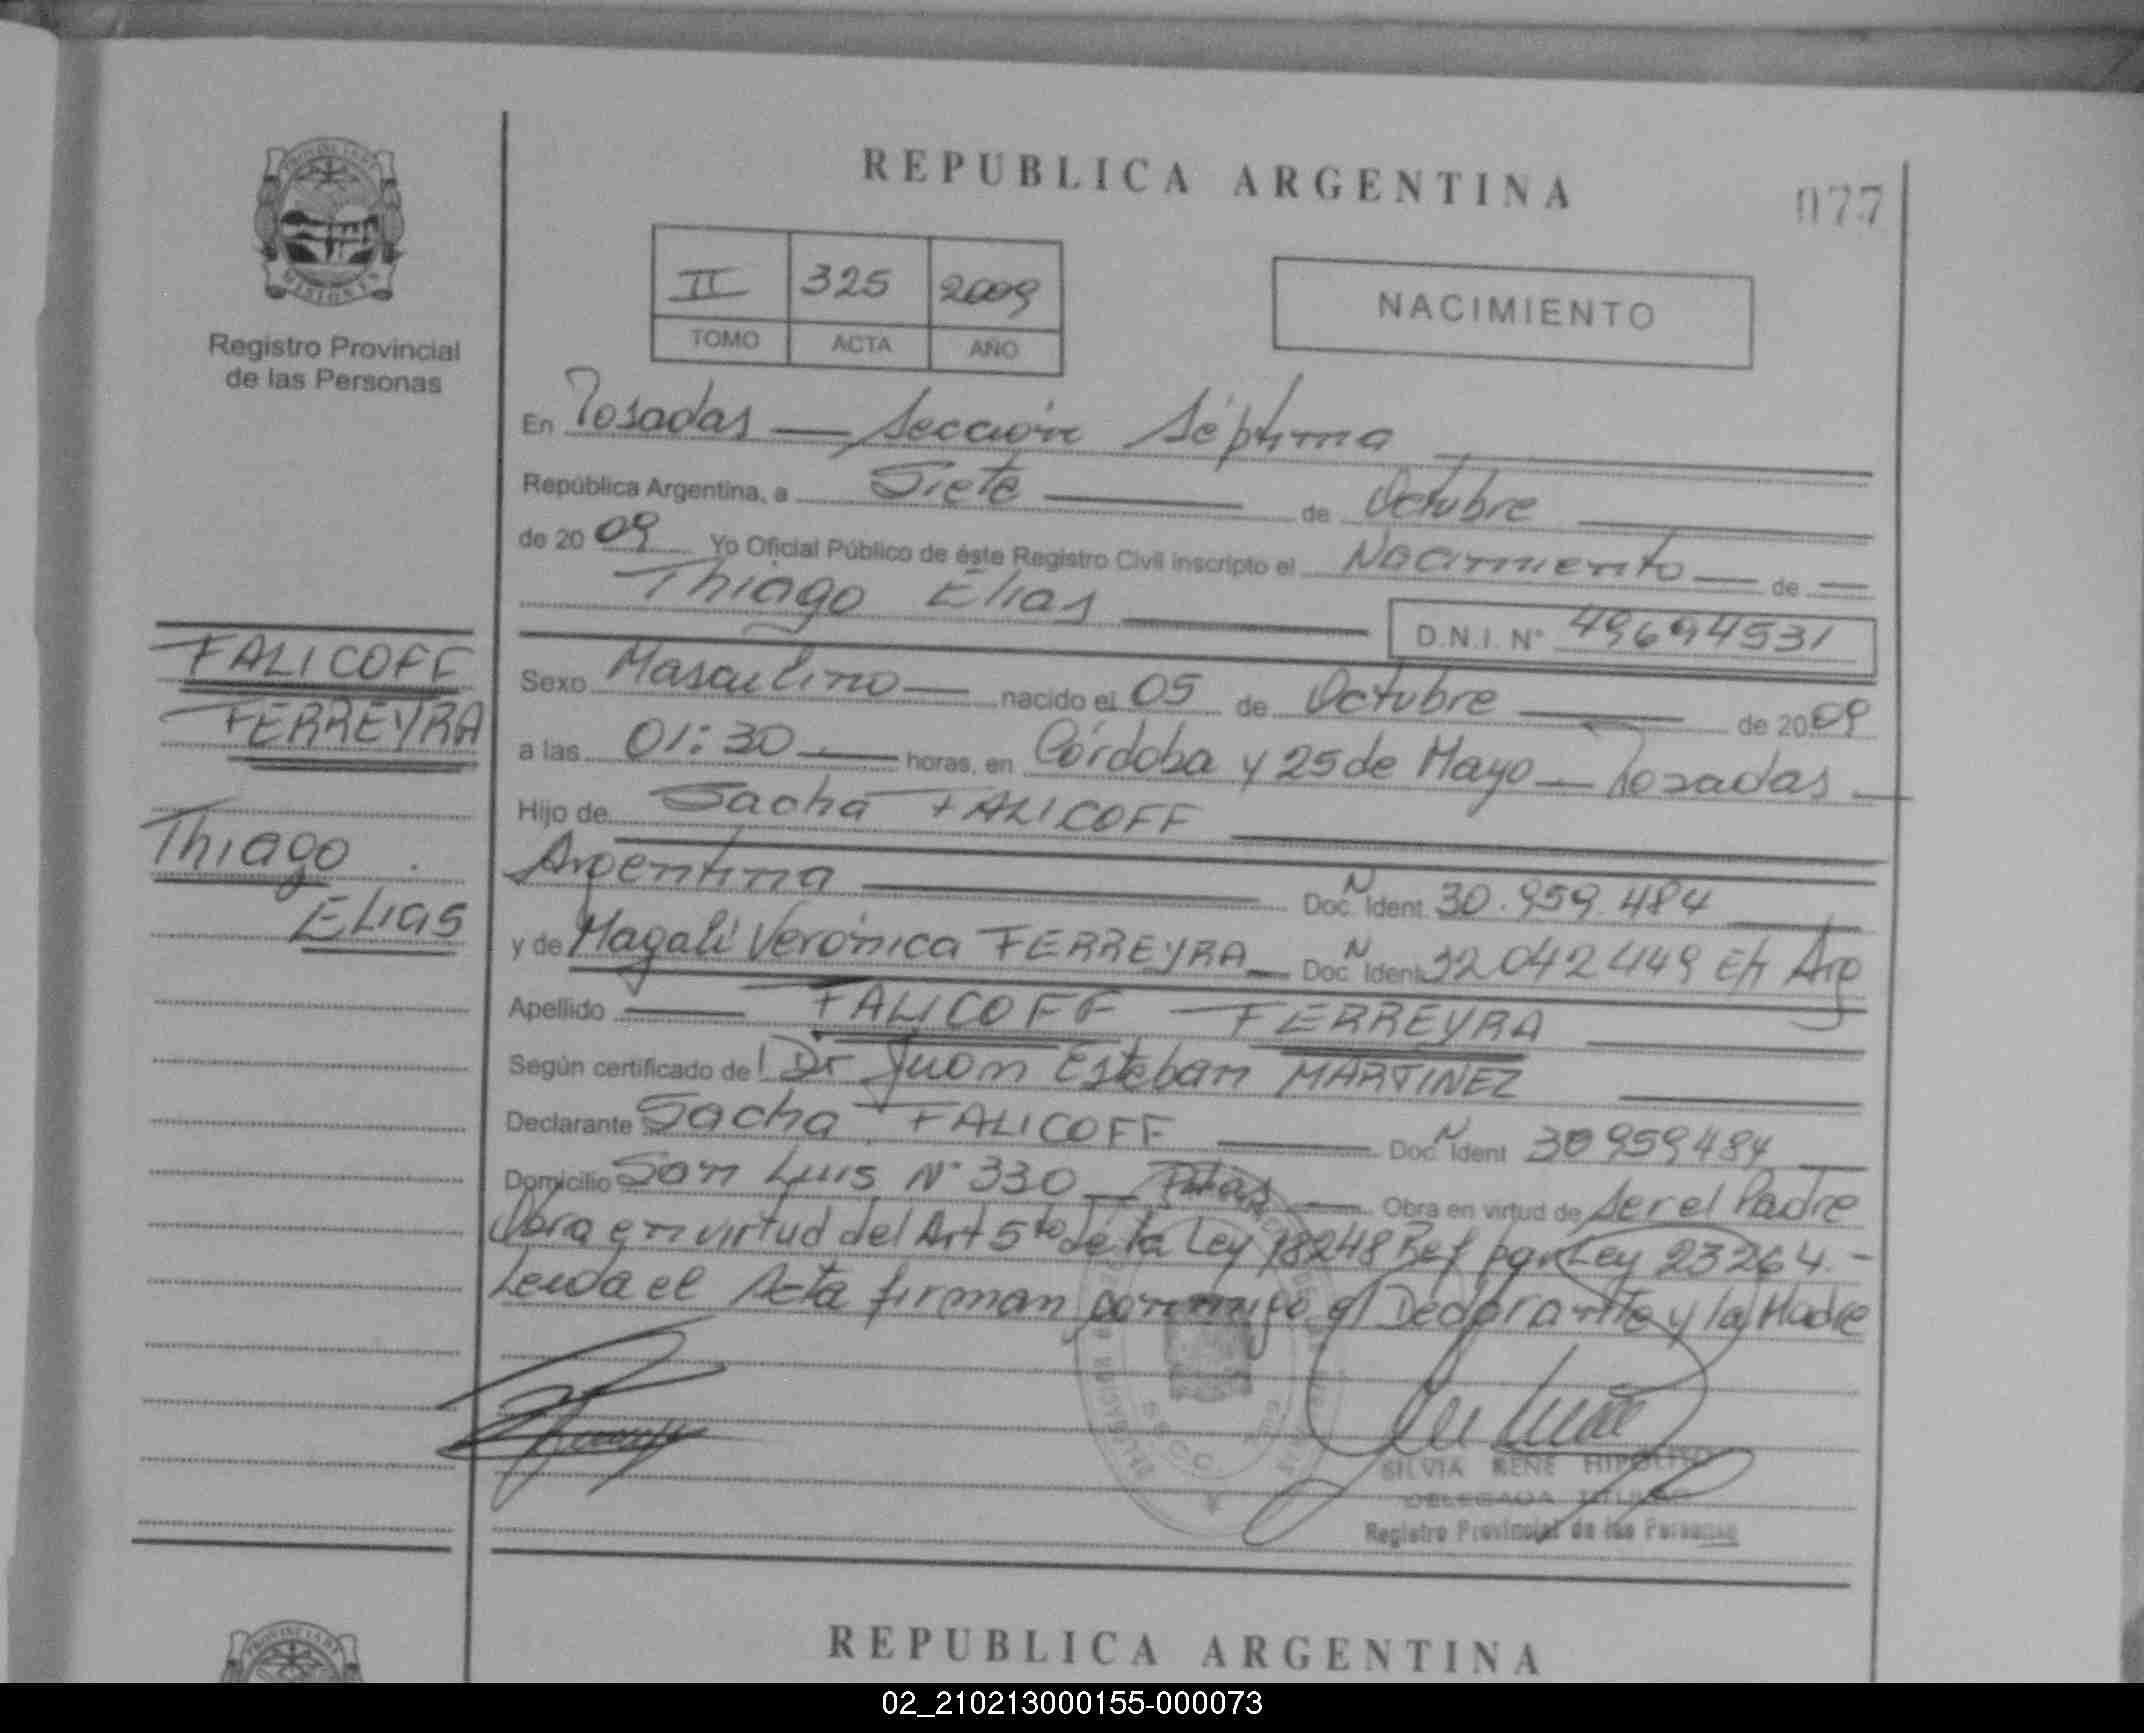 REPUBLICA ARGENTINA
077
PROVINCIA DE MISIONES
Registro Provincial
de las Personas
II 325 2009
TOMO ACTA AÑO
NACIMIENTO
En Posadas — Sección Séptima
República Argentina, a Siete de Octubre
de 2009 Yo Oficial Público de éste Registro Civil inscripto el Nacimiento — de —
Thiago Elias
D.N.I. N° 49694531
FALICOFF
FERREYRA
Thiago
Elias
Sexo Masculino — nacido el 05 de Octubre — de 2009
a las 01:30 — horas, en Córdoba y 25 de Mayo — Posadas —
Hijo de Sacha FALICOFF
Argentina — Doc. N Ident. 30.959.484
y de Magali Verónica FERREYRA — Doc. N Ident. 32042449 Arg
Apellido — FALICOFF — FERREYRA
Según certificado del Dr Juan Esteban MARTINEZ
Declarante Sacha FALICOFF — Doc. N Ident 30959484
Domicilio San Luis N° 330 — Pdas — Obra en virtud de ser el Padre
Obra en virtud del Art 5to de la Ley 18248 Ref por Ley 23264.-
Leida el Acta firman conmigo el Declarante y la Madre
SILVIA RENE HIPOLITO
DELEGADA TITULAR
Registro Provincial de las Personas
REPUBLICA ARGENTINA
02_210213000155-000073